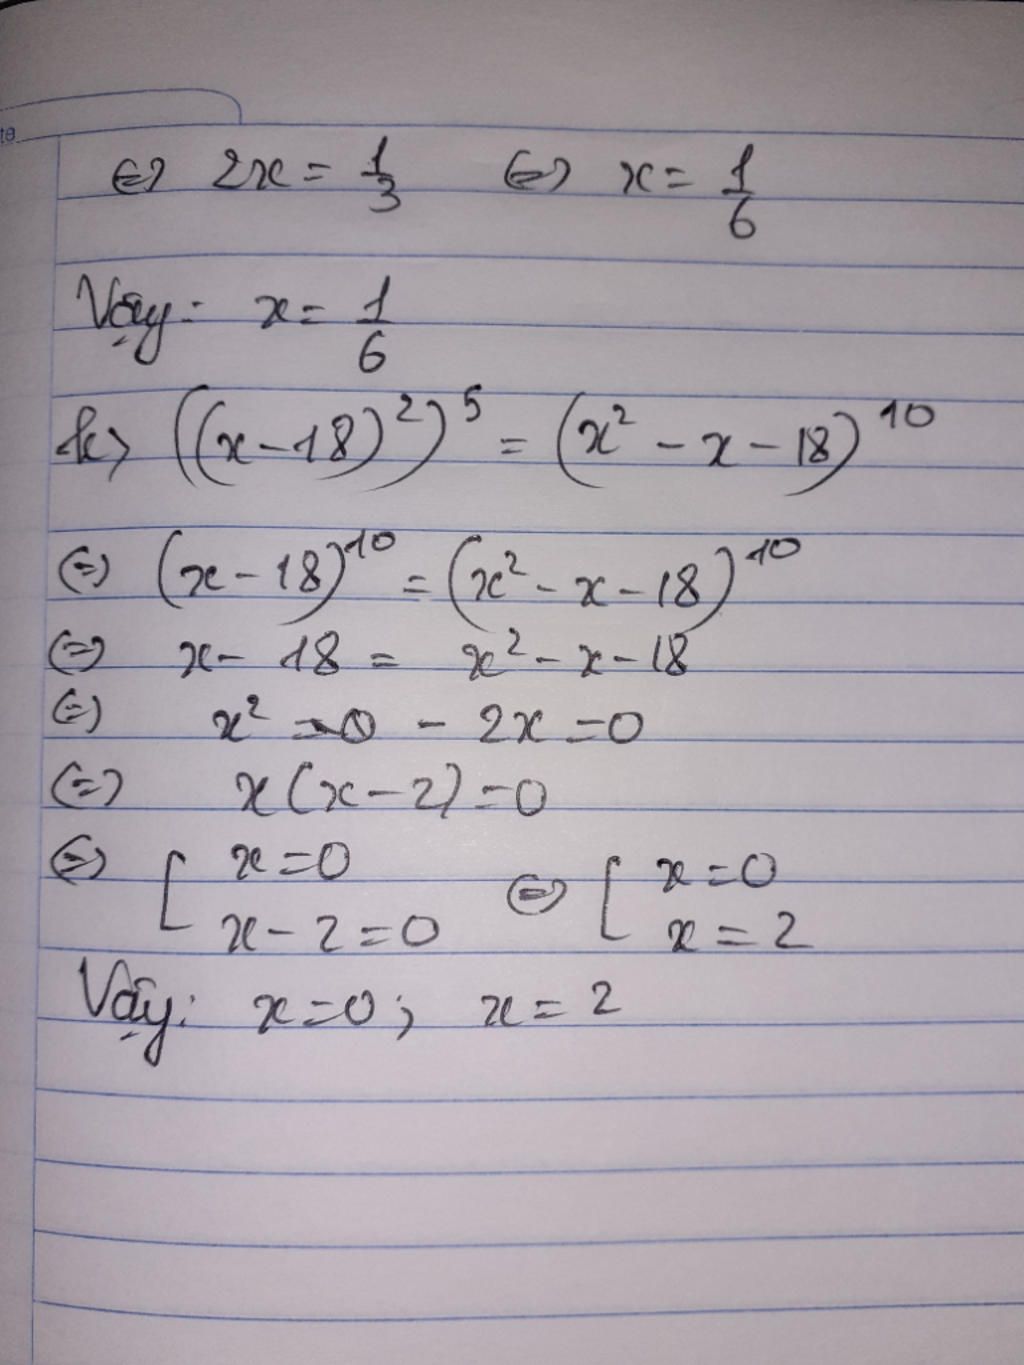 ⇔ 2x = 1/3 ⇔ x = 1/6
Vậy: x = 1/6
k> ((x-18)²)⁵ = (x² - x - 18)¹⁰
⇔ (x - 18)¹⁰ = (x² - x - 18)¹⁰
⇔ x - 18 = x² - x - 18
⇔ x² - 2x = 0
⇔ x(x-2) = 0
⇔ [ x = 0 ⇔ [ x = 0
x - 2 = 0 x = 2
Vậy: x = 0; x = 2